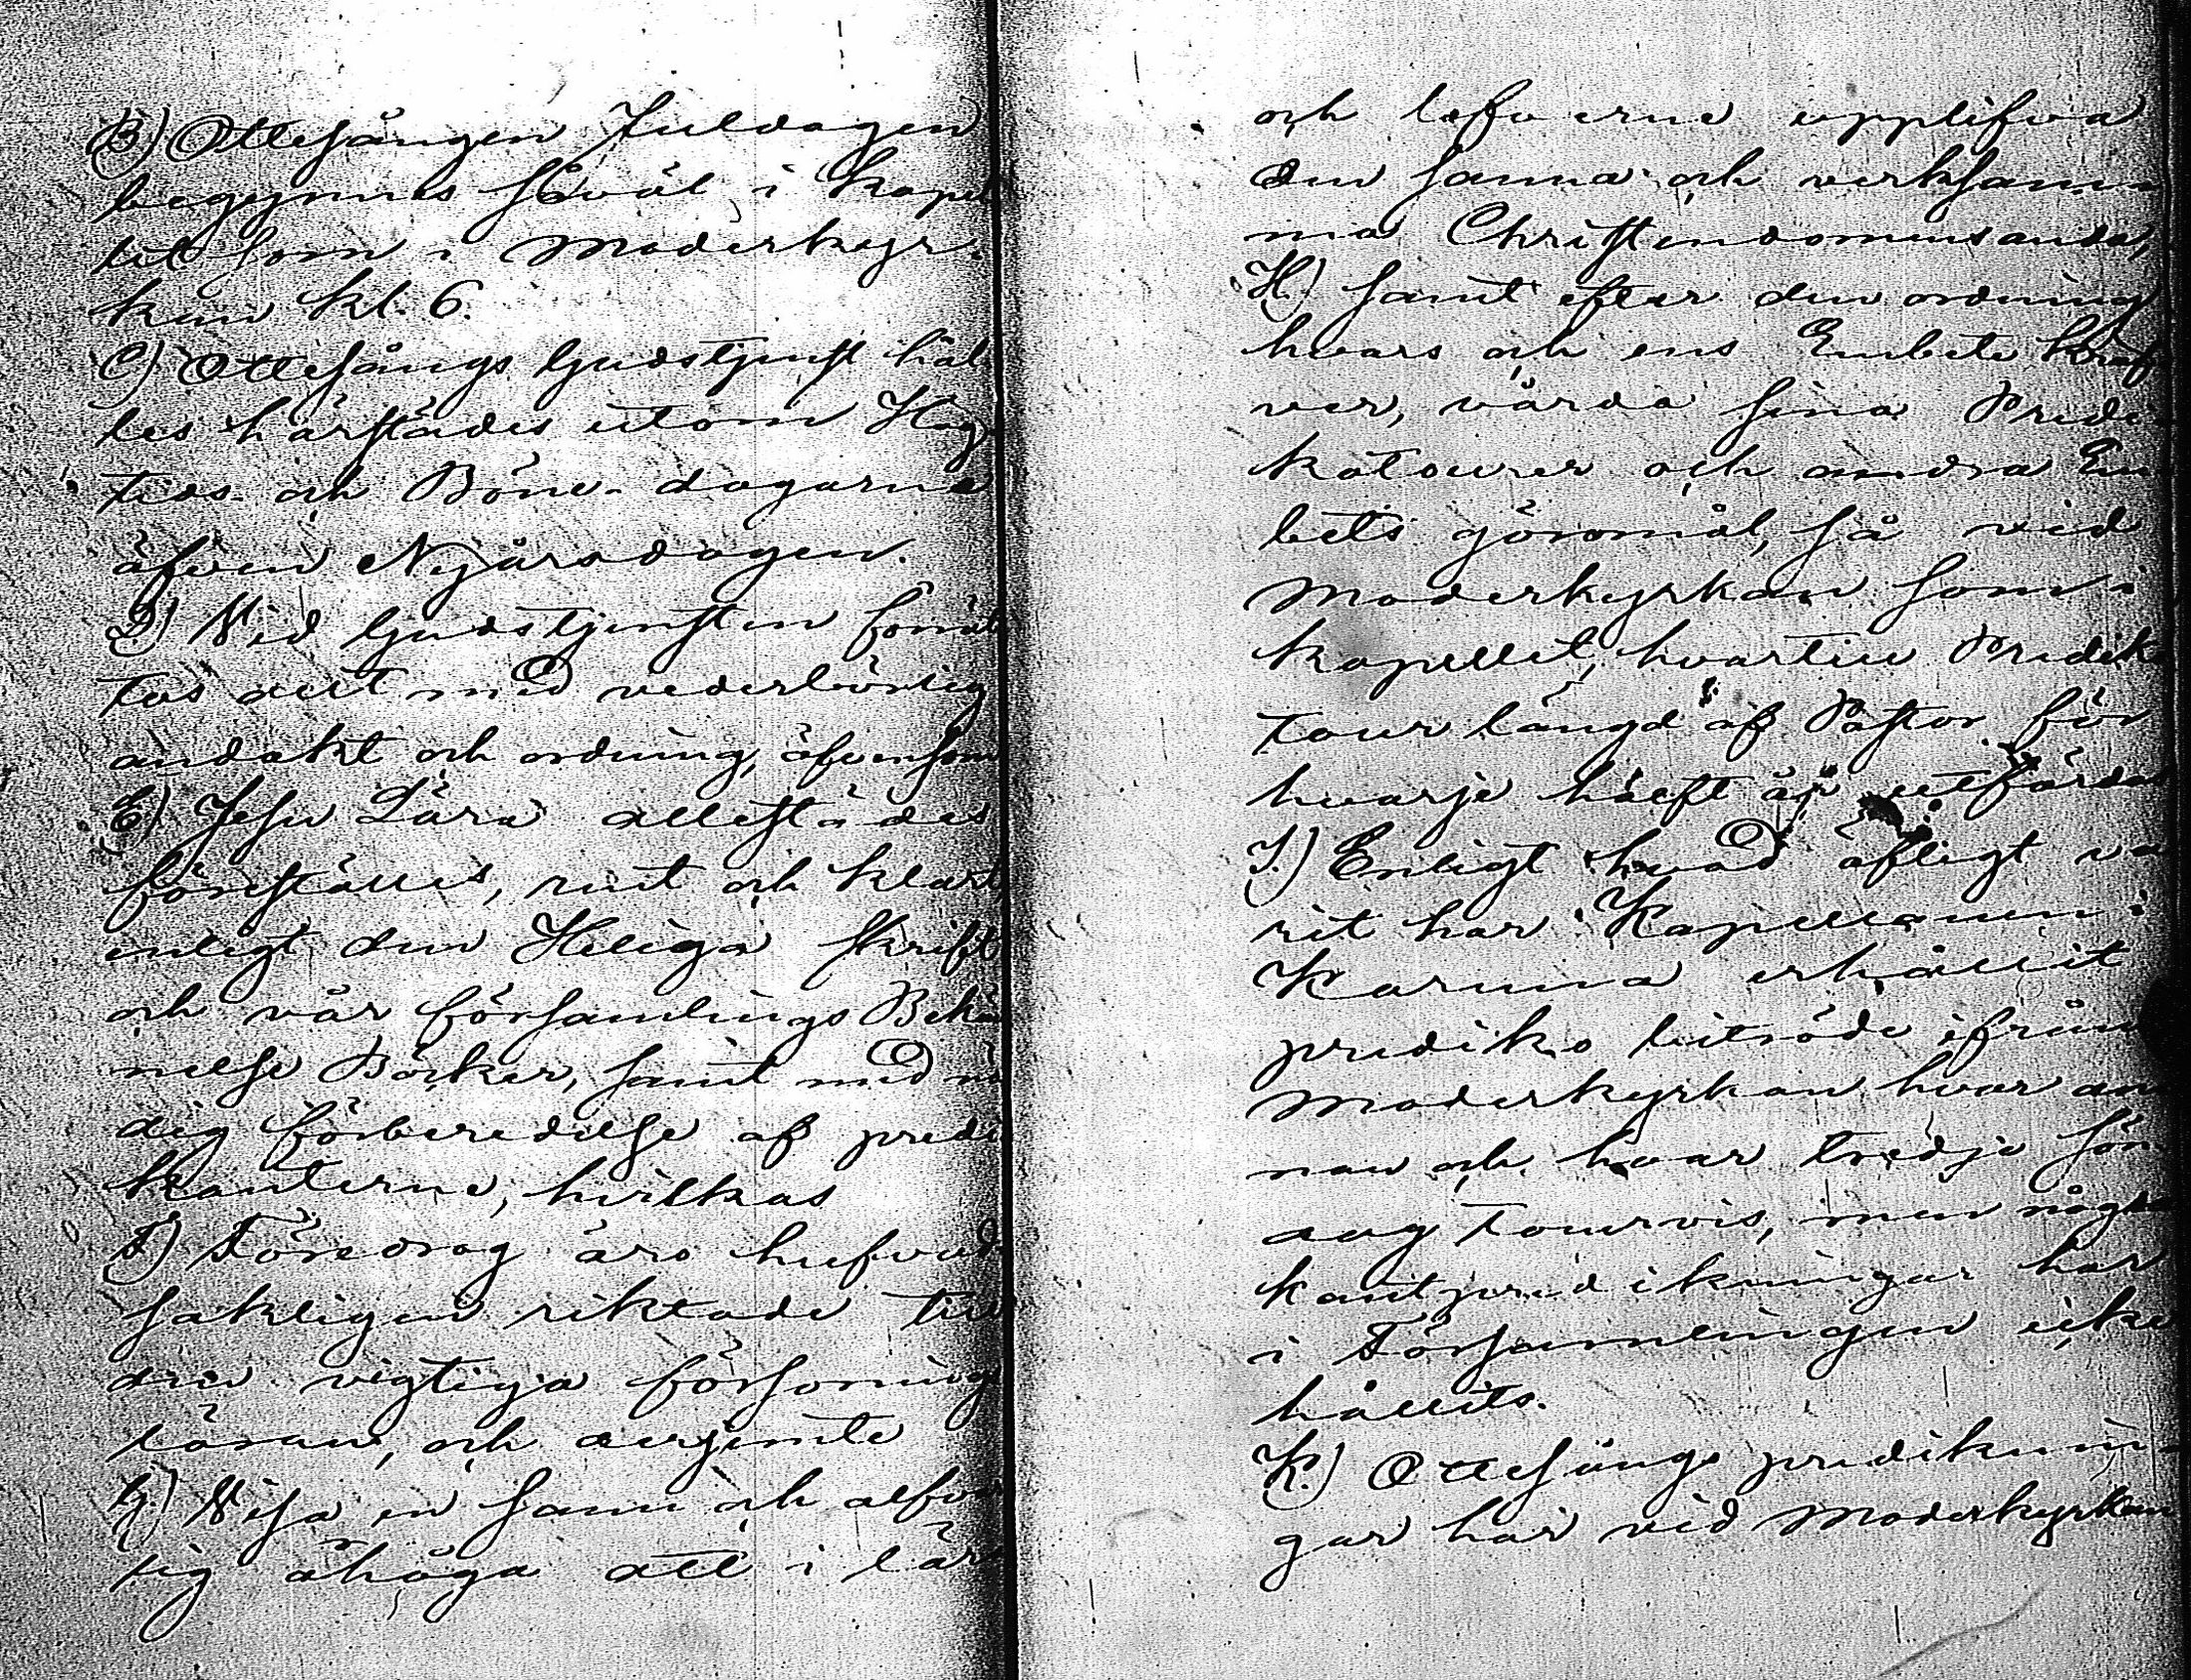 B) Ottesången Juldagen
begynnes såväl i Kapel
let som i Moderkyr-
kan kl. 6.
C) Ottesångs Gudstjenst hål
les härstädes utom Hög-
tids- och Böne- dagarne
äfven Nyårsdagen.
D) Vid Gudstjensten förrät
tas allt med vederbörlig
andakt och ordning, äfvensom
E) Jesu Lära allestädes
föreställes, rent och klart
enligt den Heliga Skrift
och vår församlings Bekän
nelse Böcker, samt med nö
dig förberedelse af predi
kanterne, hvilkas
F) Föredrag äro hufvud
sakligen riktade till
den vigtiga försonings
läran, och derjemte
G) Visa en sann och alfvar
lig åhåga att i lär
och lefverne upplifva
den sanna och verksam-
ma Christendomens anda,
H.) samt efter den ordning
hvars och ens Embete kräf
ver, vårda sina Predi-
kotourer och andra Em
bets göromål, så vid
Moderkyrkan som i
kapellet, hvartill Predik
tour längd af Pastor för
hvarje hälft år utfärdas
I.) Enligt hvad öfligt va
rit har Kapellanen i
Karuna erhållit
prediko biträde ifrån
Moderkyrkan hvar an
nan och hvar tredje sön
dag tourvis, men någre
kantpredikningar har
i Församlingen icke
hållits.
K.) Ottesångs prediknin-
gar har vid Moderkyrkan